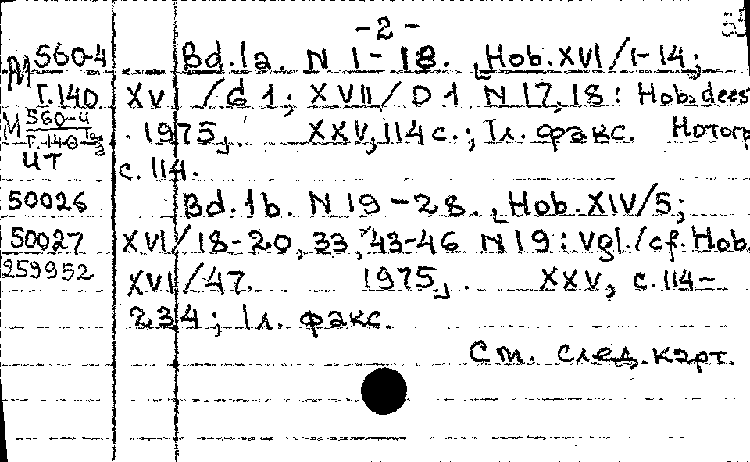 -2-
М 560-4 Bd.1a. N 1-18. [Hob.XVI/1-14;
Г.140 XVI/G1; XVII/D1 N 17,18: Hob.dees
М 560-4 1975]. XXV, 114 с.; 1л. факс. Нотогр
Г.140
ЧТ с.114.
50026 Bd.1b. N 19-28. [Hob.XIV/5;
50027 XVI/18-20, 33, 43-46 N 19: Vgl./cf. Hob.
259952 XVI/47. 1975]. XXV, с.114-
234; 1л. факс.
См. след. карт.